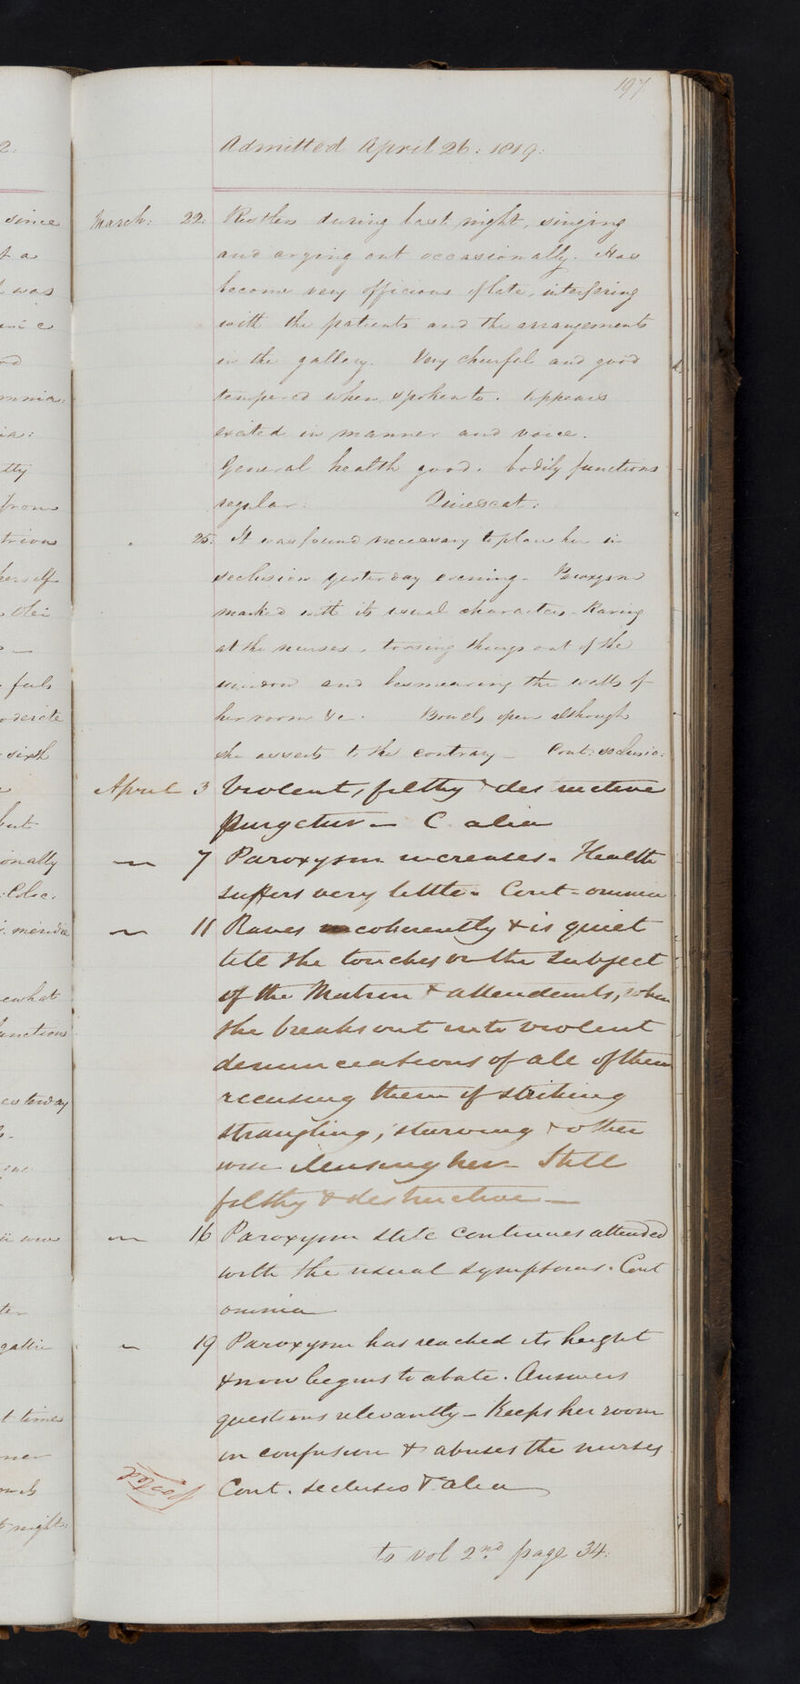 197
Admitted April 26: 1819:
March: 22: Restless during last night, singing
and crying out occasionally. Has
become very officious of late, interfering
with the patients and the arrangements
in the gallery. Very cheerful and good
tempered when spoken to. Appears
excited in manner and voice.
General health good. bodily functions
regular.
25: It was found necessary to place her in
seclusion yesterday evening - Paroxysm
marked with its usual characters - Raving
at the nurses, tossing things out of the
window and besmearing the walls of
her room &c. Bowels open although
she asserts to the contrary - Cont: seclusio:
April 3 Violent, filthy & destructive
Purgetur - C alia
- 7 Paroxysm increases. Health
suffers very little - Cont - omnia
- 11 Raves incoherently & is quiet
till she touches on the subject
of the Matron & attendants, when
she breaks out into violent
denunciations of all of them
accusing them of striking
strangling, starving & other
wise using her - Still
filthy & destructive -
- 16 Paroxysm state continues attended
with the usual symptoms. Cont
omnia
- 19 Paroxysm has reached its height
& now begins to abate. Answers
questions relevantly - Keeps her room
in confusion & abuses the nurses
Cont. seclusio & alia
Posted
to vol 2nd page 34:
since
was
herself
sixth
but
functions
times
night: